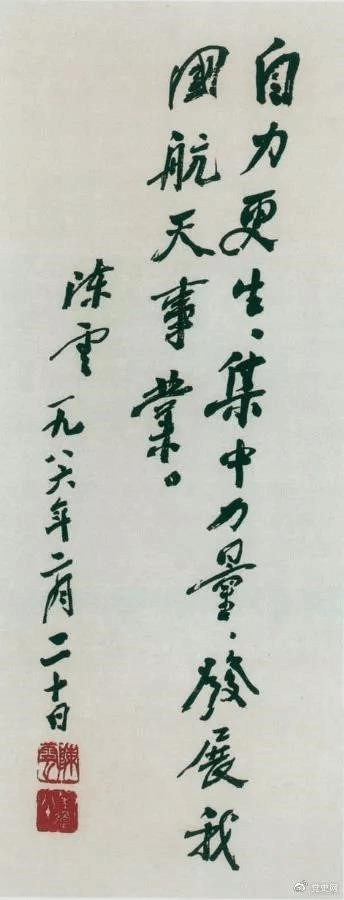 自力更生、集中力量、發展我
國航天事業。
陳雲一九八六年二月二十日
陳雲
党史网